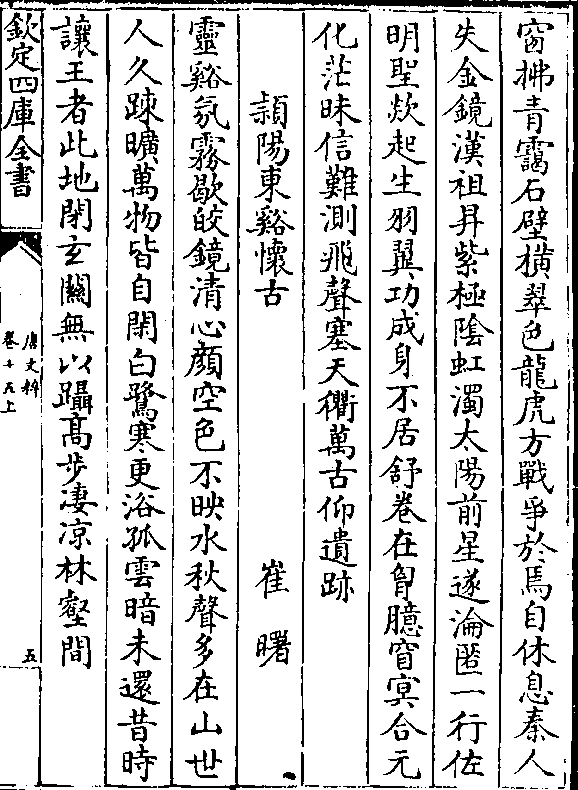 窗拂青靄石壁横翠色龍虎方戰爭於焉自休息秦人
失金鏡漢祖昇紫極陰虹濁太陽前星遂淪匿一行佐
明聖欻起生羽翼功成身不居舒卷在胷臆窅冥合元
化茫昧信難測飛聲塞天衢萬古仰遺跡
頴陽東谿懷古
崔曙
靈谿氛霧歇皎鏡清心顔空色不映水秋聲多在山世
人久踈曠萬物皆自閑白鷺寒更浴孤雲暗未還昔時
讓王者此地閉玄關無以躡髙步凄凉林壑間
欽定四庫全書
唐文粹
卷十五上
五